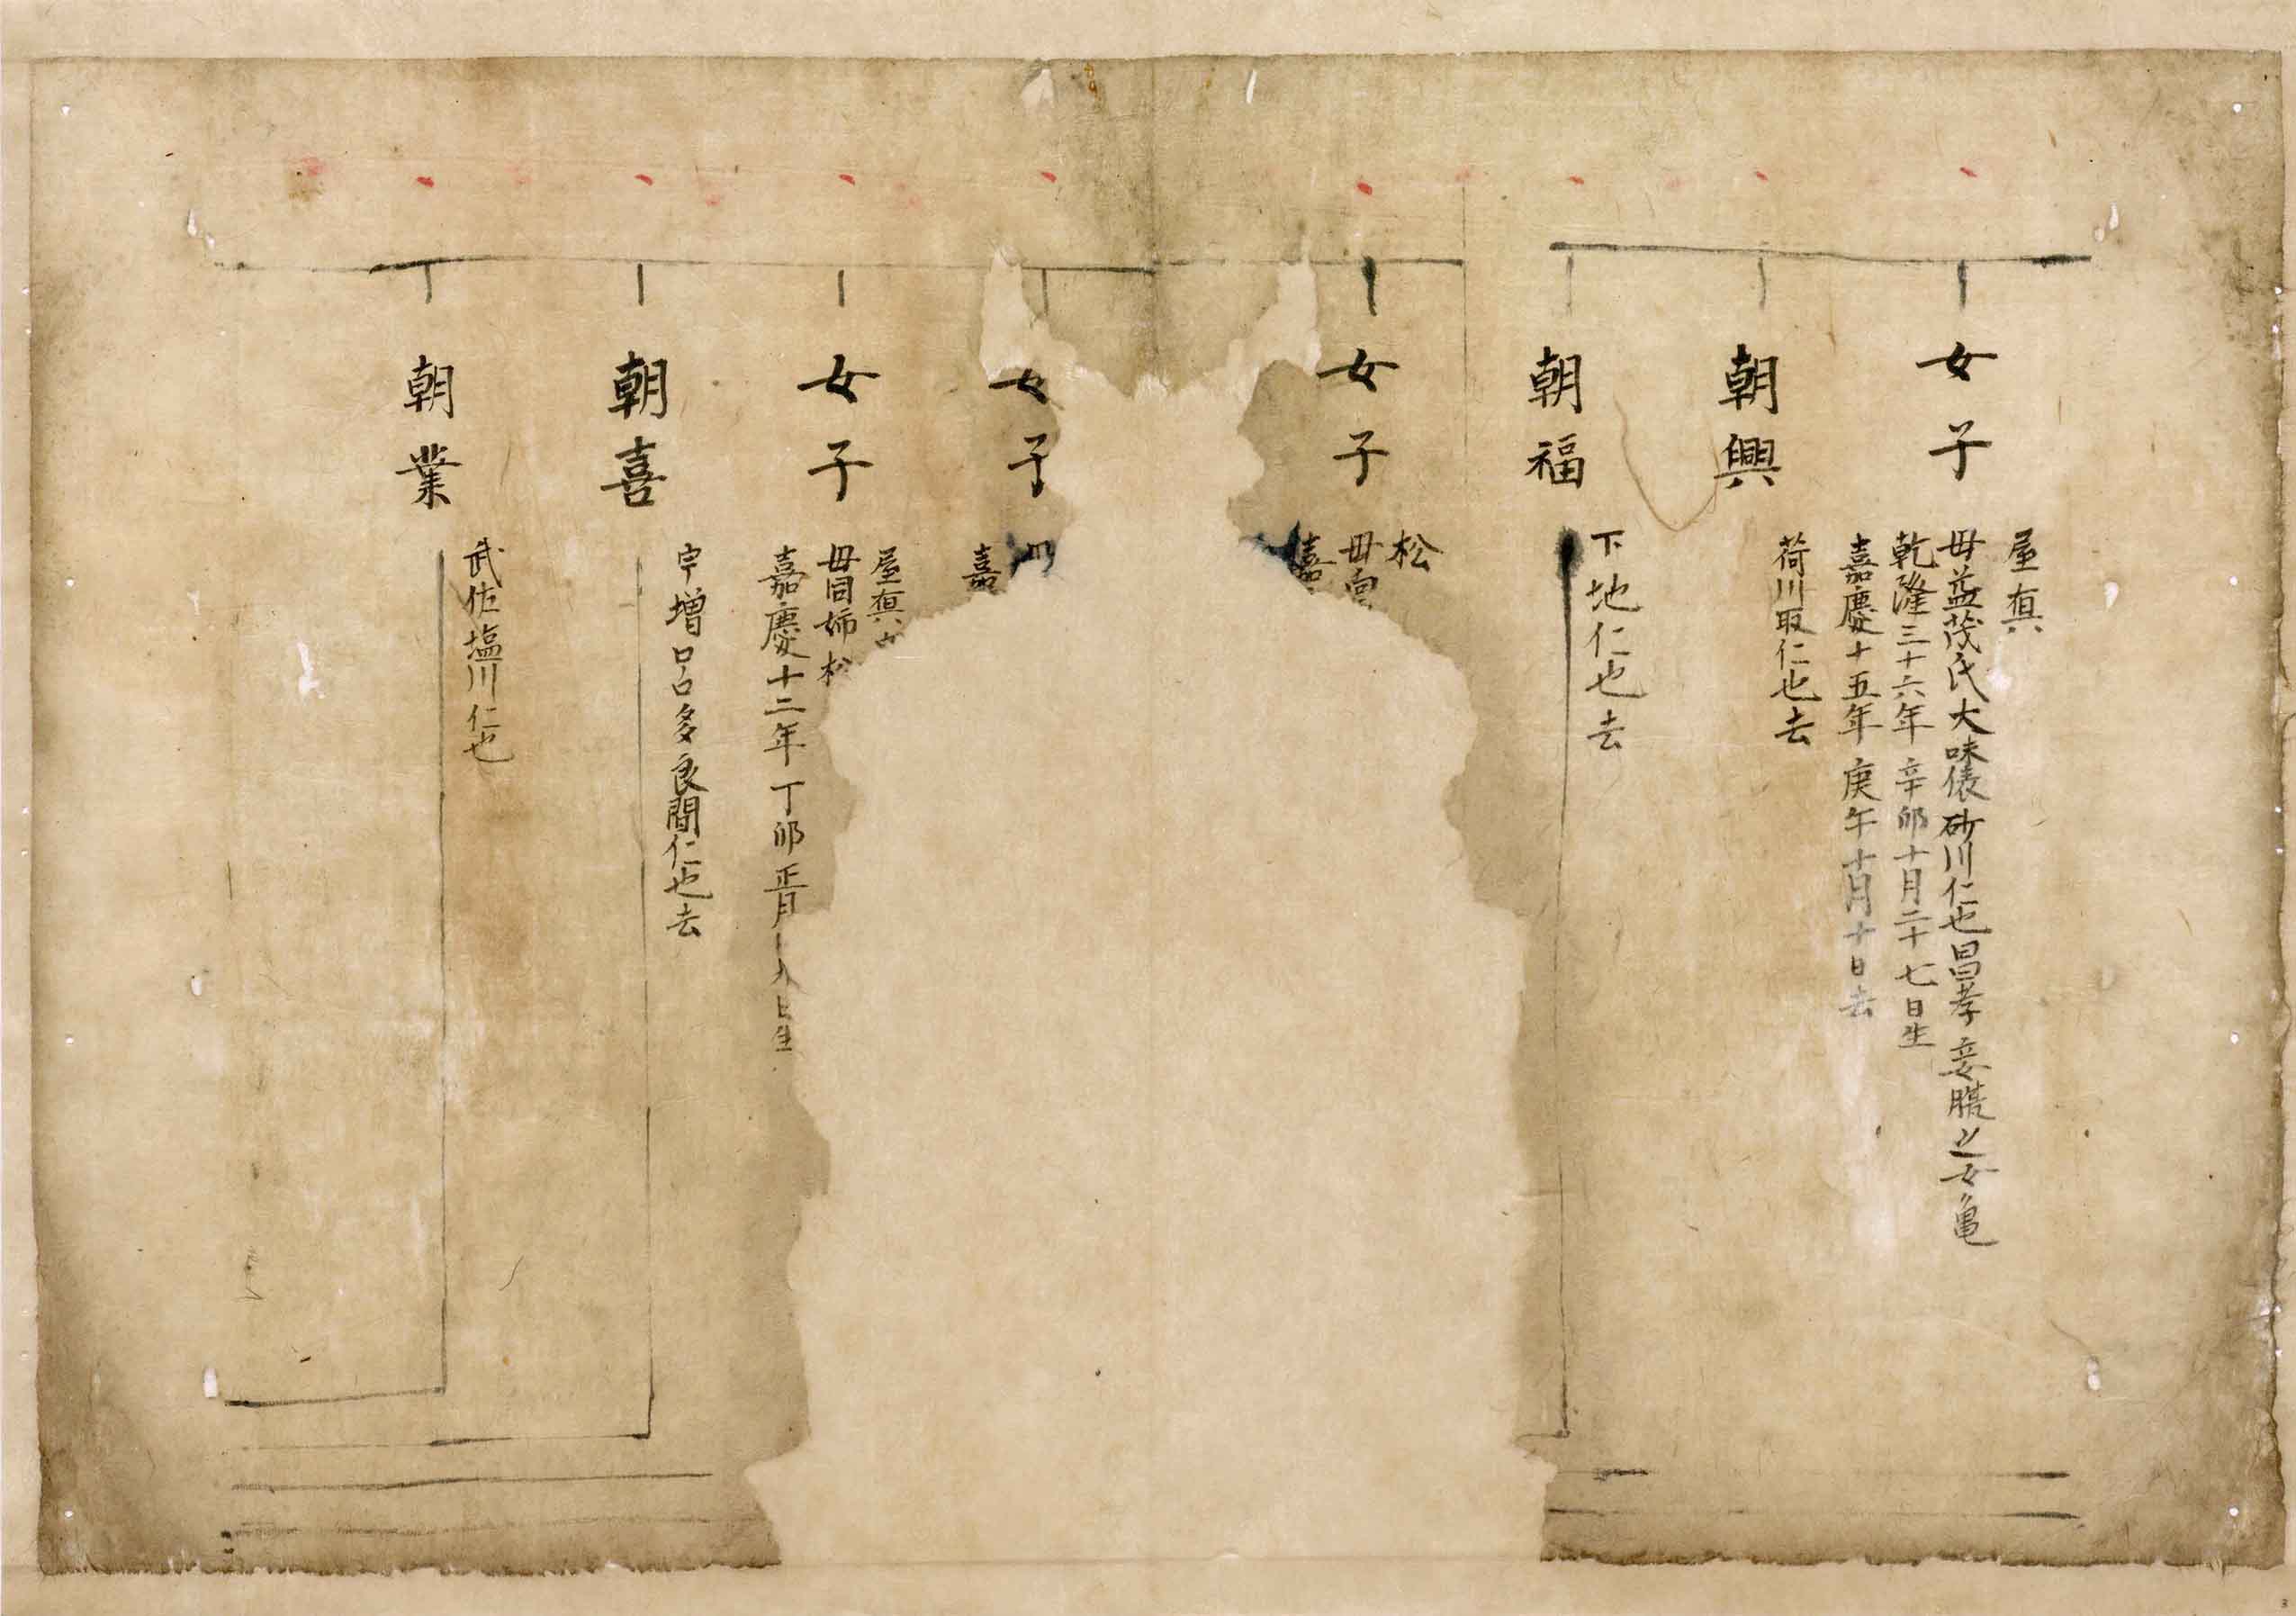 女子
屋真
毋益茂氏大味俵砂川仁也昌孝妾腹之女亀
乾隆三十六年辛卯十月二十七日生
嘉慶十五年庚午十月十日去
朝興
荷川取仁也去
朝福
下地仁也去
女子
松
毋
嘉
女子
嘉
女子
屋真
毋同姉松
嘉慶十二年丁卯正月 日生
朝喜
増呂多良間仁也去
朝業
武佐塩川仁也